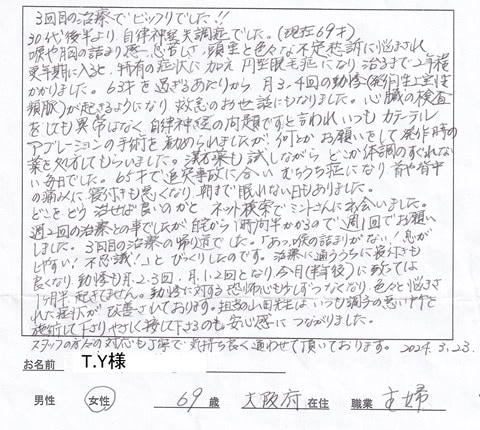 3回目の治療でビックリでした!!
30代後半より、自律神経失調症でした。(現在69才)
喉や胸の詰まり感、息苦しさ、頭重と色々な不定愁訴に悩まされ
更年期に入ると、特有の症状に加え円型脱毛症になり治るまで2年程
かかりました。63才を過ぎるあたりから月3、4回の動悸(発作性上室性
頻脈)が起きるようになり救急のお世話にもなりました。心臓の検査
をしても異常はなく自律神経の問題ですと言われ、いつもカテーテル
アブレーションの手術を勧められましたが、何とかお願いをして発作時の
薬を処方してもらいました。漢方薬も試しながらどこか体調のすぐれな
い毎日でした。65才で追突事故に合いむちうち症になり首や背中
の痛みに寝付きも悪くなり、朝まで眠れない日もありました。
どこをどう治せば良いのかとネット検索でミントさんに出会いました。
週2回の治療との事でしたが自宅から1時間半かかるので週1回でお願い
しました。3回目の治療の帰り道でした。「あっ喉の詰まりがない!息が
しやすい!不思議!」とびっくりしたのです。治療に通ううちに寝付きも
良くなり動悸も月2-3回、月1、2回となり今月(半年後)に至っては
1ヶ月半起きてません。動悸に対する恐怖心も少しずつなくなり、色々と悩まさ
れた症状が改善されております。担当の山田先生はいつも調子の悪いヶ所を
施術して下さりやさしく接して下さるのも安心感につながりました。
スタッフの方々の対応も丁寧で気持ち良く通わせて頂いております。2024.3.23.
お名前 T.Y様
男性 女性 69歳 大阪府在住 職業 主婦